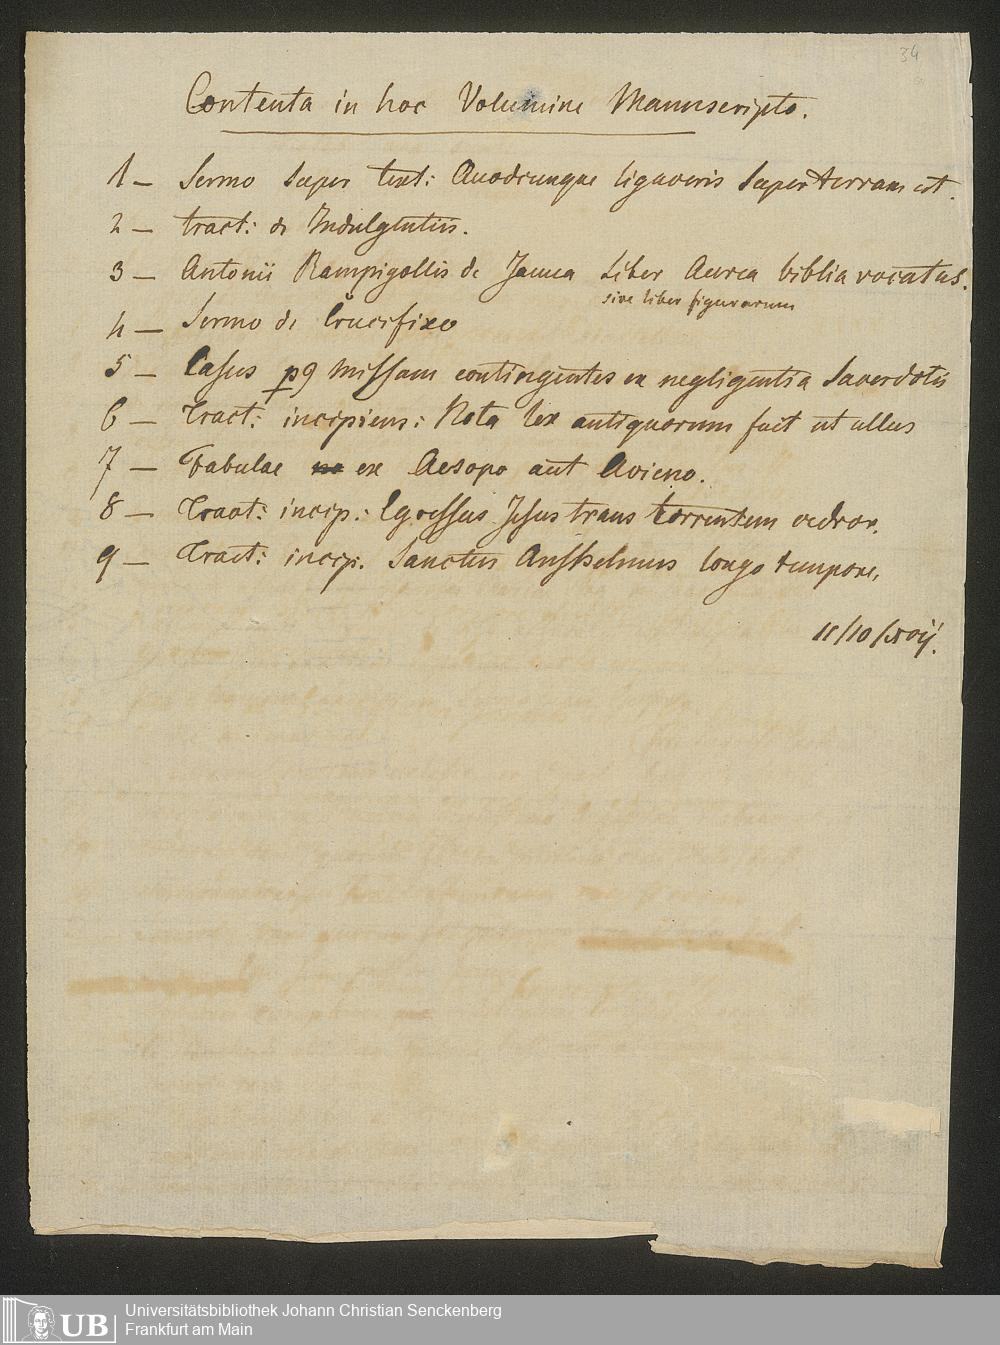 34
Contenta in hoc Volumine Manuscripto.
1 — Sermo super text: Quodcunque ligaveris super terram est.
2 — tract: de Indulgentiis.
3 — Antonii Rampigollis de Janua Liber Aurea biblia vocatus.
sive liber figurarum
4 — Sermo de Crucifixo
5 — Casus p9 Missam contingentes ex negligentia Sacerdotis
6 — Tract: incipiens: Nota lex antiquorum fuit ut ullus
7 — Fabulae ex Aesopo aut Avieno.
8 — Tract: incip: Egressus Jesus trans torrentem cedron.
9 — Tract: incip. Sanctus Anshelmus longo tempore,
Universitätsbibliothek Johann Christian Senckenberg
Frankfurt am Main
UB